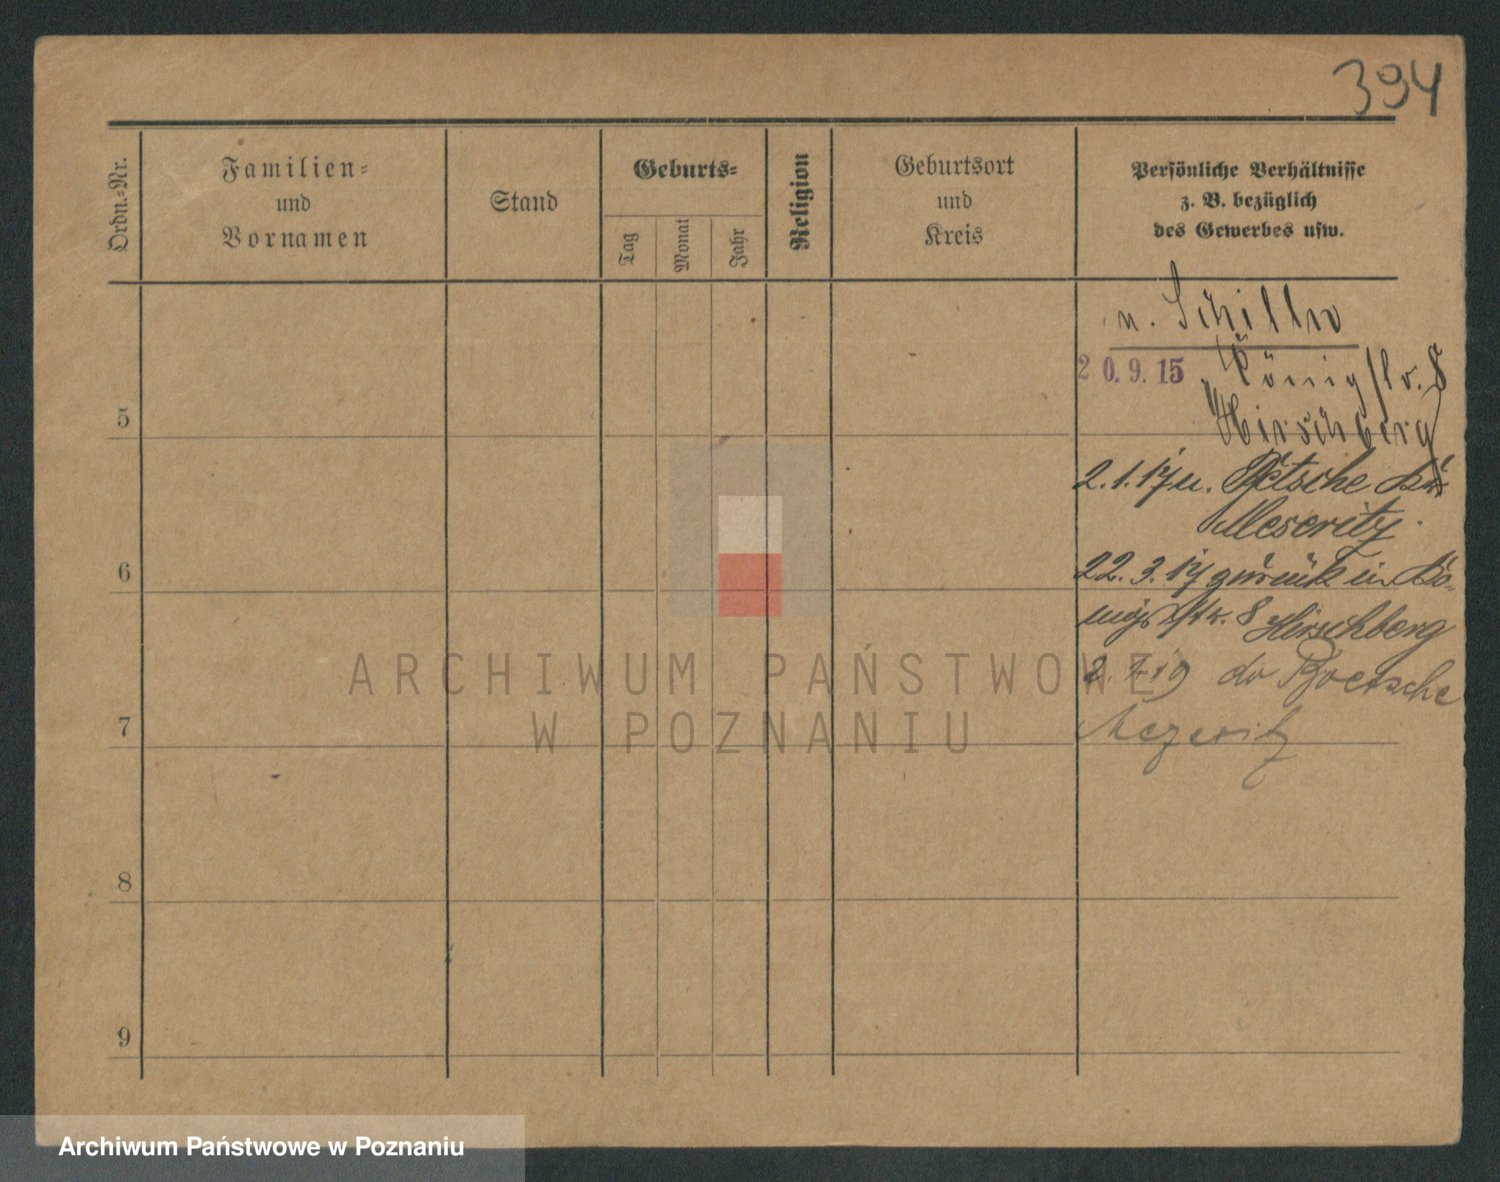 394
Ordn.-Nr.
Familien-
und
Vornamen
Stand
Geburts-
Tag
Monat
Jahr
Religion
Geburtsort
und
Kreis
Persönliche Verhältnisse
z. B. bezüglich
des Gewerbes usw.
n.
20.9.15 8
5
Hirschberg
2.1.17 n.
Meseritz.
6
22.3.17 zurück in Kö-
nigs 8 Hirschberg
2. 7 19
7
Mezeritz
8
9
ARCHIWUM PAŃSTWOWE
W POZNANIU
Archiwum Państwowe w Poznaniu